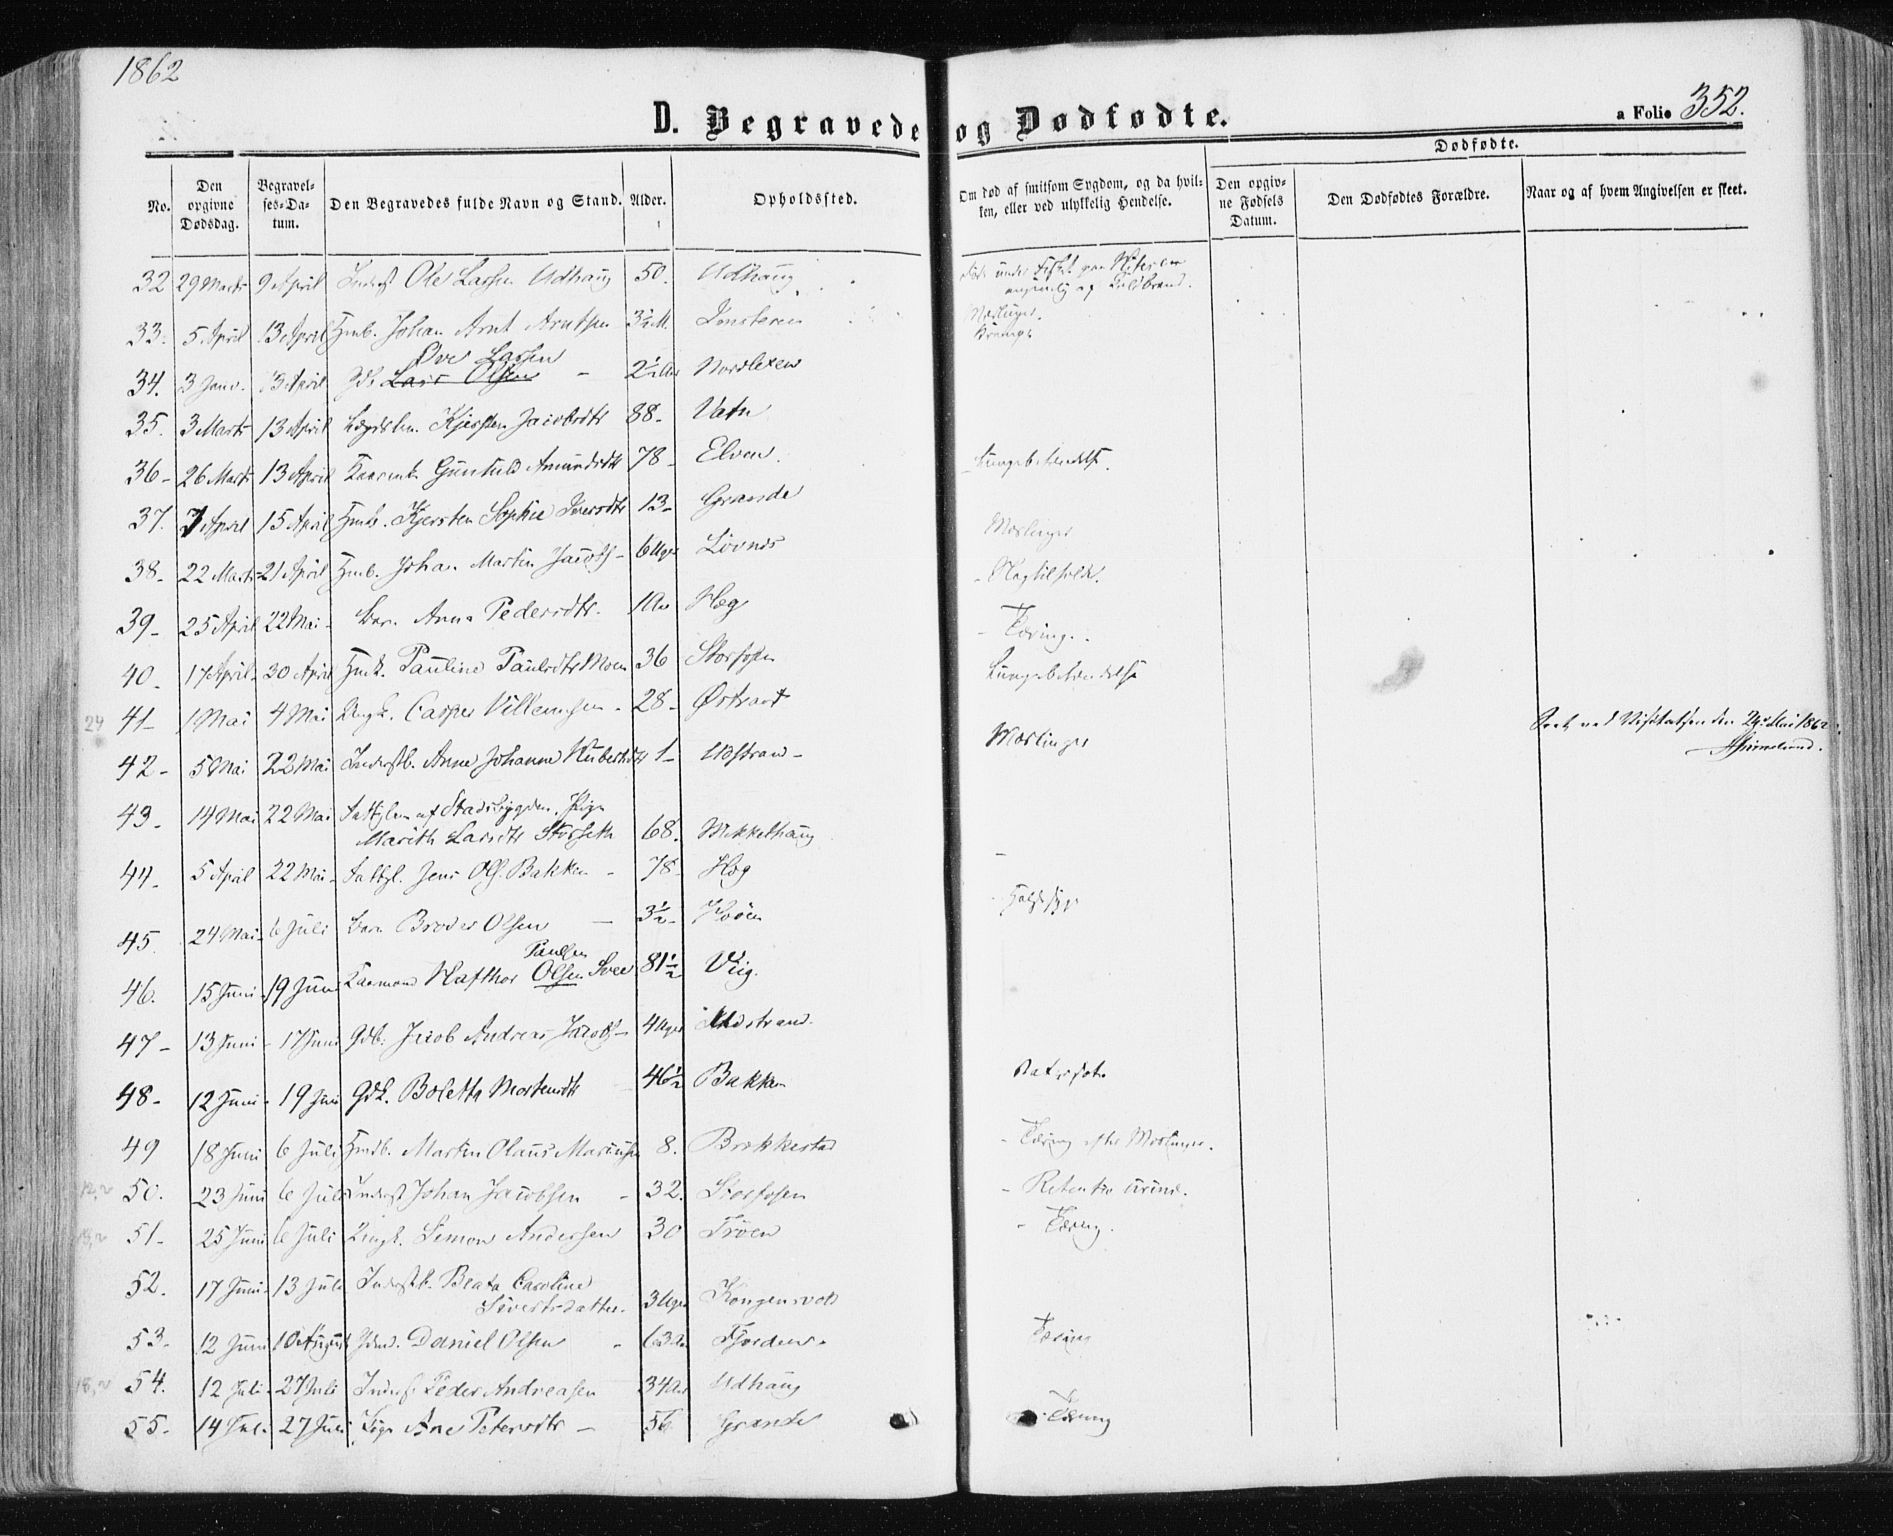 1862
D. Begravede og Dødfødte.
a Folio 352.
Dødfødte.
No.
Den opgivne Dødsdag.
Begravelses-Datum.
Den Begravedes fulde Navn og Stand.
Alder.
Opholdssted.
Om død af smitsom Sygdom, og da hvilken, eller ved ulykkelig Hendelse.
Den opgivne Fødsels Datum.
Den Dødfødtes Forældre.
Naar og af hvem Angivelsen er skeet.
32 29 Marts 9 April Inderst Ole Larsen Udhaug 50. Udhaug under Fiskt paa
33. 5 April 13 April Hmb. Johan Arnt Arntsen 3½ M. Mæslinger.
Ove Larsen
34. 3 Janv. 13 April Lars Olsen - 2½ Aar Nordlexen
35. 3 Marts 13 April Lægdslem. Kjersten Jacobsdtr 88. Vatn
36 - 26 Marts 13 April Gunhild Amundsdtr 78 - Elven. Lungebetændelse.
37. 7 April 15 April Hmb. Kjersten Sophie Iversdtr 13 - Grande Mæslinger
38 - 22 Marts 21 April Hmb. Johan Martin Jacobs - 6 Uger Lövnes
39 - 25 April 22 Mai - Barn Anne Pedersdtr. 1 Aar Hog - Tæring.
40. 17 April - 30 April Hmk. Pauline Paulsdtr Moen 36 Storfosen Lungebetændelse
24 41 - 1 Mai 4 Mai Ungk. Casper Villumsen - 28 - Østraat Seet ved Visitatsen den 24de Mai 1862.
42 - 5 Mai 22 Mai Inderstb. Anne Johanne Hubertsdtr 1 - Udstrand - Mæslinger
43 - 14 Mai 22 Mai Fattiglem af Stadsbygden, Pige
Marith Larsdtr Storseth 68. Mekkelhaug
44 - 5 April 22 Mai - Fattgl. Jens Ols. Bakken - 78 - Hog -
45. 24 Mai - 6 Juli Barn Broder Olsen - 3½ -
Paulsen
46. 15 Juni - 19 Juni Kaarmand Hafthor Olsen Svee 81½ Viig.
47 - 13 Juni - 17 Juni Gdb. Jacob Andreas Jacobs - 4 Uger Udstrand.
48 - 12 Juni - 19 Juni Gdk. Boletta Mortensdtr 46½ Bakken
49 18 Juni 6 Juli Hmdb. Martin Olaus Mariusen 8. Brækkestad - Tæring efter Mæslinger.
50. 23 Juni 6 Juli Inderst Johan Jacobsen - 32. Storfosen - Retentio urinæ.
51 - 25 Juni 6 Juli Ungk. Simon Andersen 30 Trøen - Tæring.
52. 17 Juni - 13 Juli Inderstb. Beata Caroline
Sivertsdatter. 3 Uger Kongensvold
53 - 12 Juni 10 August Gdm. Daniel Olsen - 63 Aar Fjorden - Tæring
54. 12 Juli - 27 Juli Inderst Peder Andreasen 34 Aar Udhaug
55 - 14 Juli 27 Juli Pige Ane Petersdtr - 56 Grande - Tæring